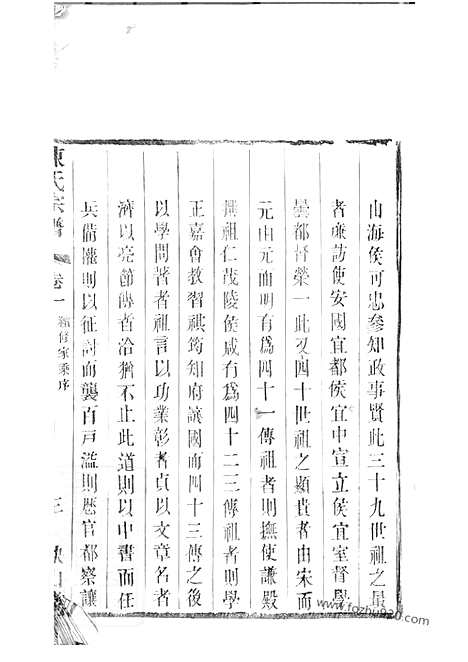 山海侯可忠參知政事賢此三十九世祖之最
者廉訪使安國宜都侯宜中宣立侯宜室督學
曇都督榮一此又四十世祖之顯貴者由宋而
元由元而明有為四十一傳祖者則撫使謙殿
撰祖仁茂陵侯咸有為四十二三傳祖者則學
正嘉會教習祺筠知府讓國而四十三傳之後
以學問著者祖言以功業彰者貞以文章名者
濟以亮節傳者洽猶不止此道則以中書而任
兵備隴則以征討而襲百戶濫則歷官都察讓
陳氏宗譜
卷一
續修家乘序
三
www.fozhu920.com